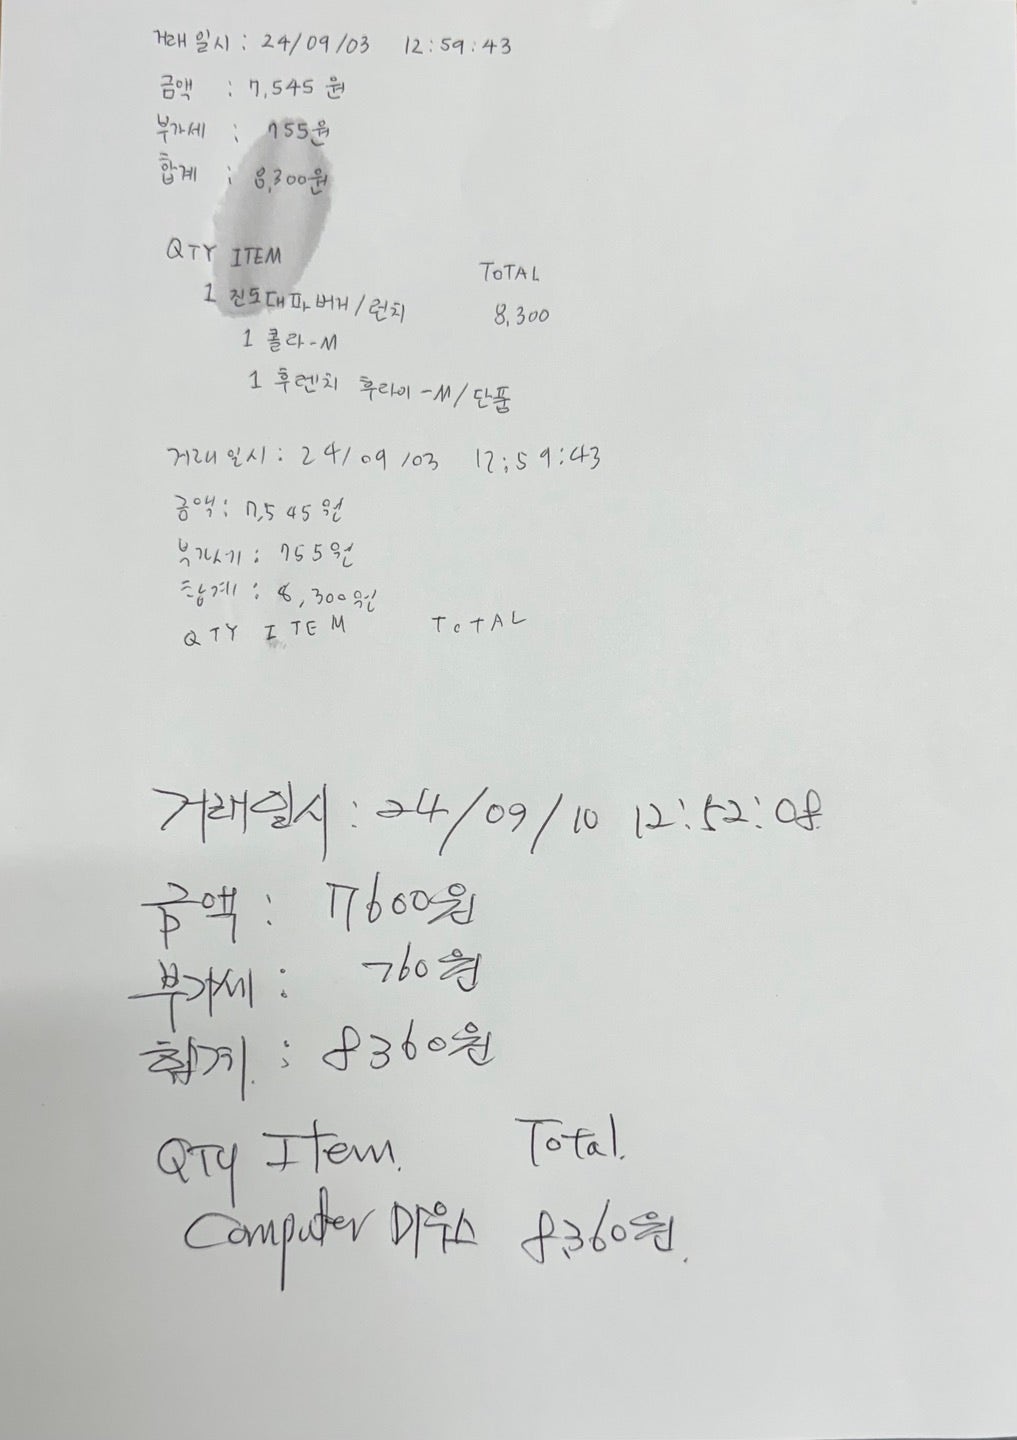 거래 일시 : 24/09/03 12:59:43
금액 : 7,545 원
부가세 : 755원
합계 : 8,300원
QTY ITEM TOTAL
1 진도대파버거/런치 8,300
1 콜라-M
1 후렌치 후라이-M/단품
거래일시 : 24/09/03 12:59:43
금액 : 7,545원
부가세 : 755원
합계 : 8,300원
QTY ITEM TOTAL
거래일시 : 24/09/10 12:52:08
금액 : 7600원
부가세 : 760원
합계 : 8360원
QTY Item. Total.
Computer 마우스 8,360원.